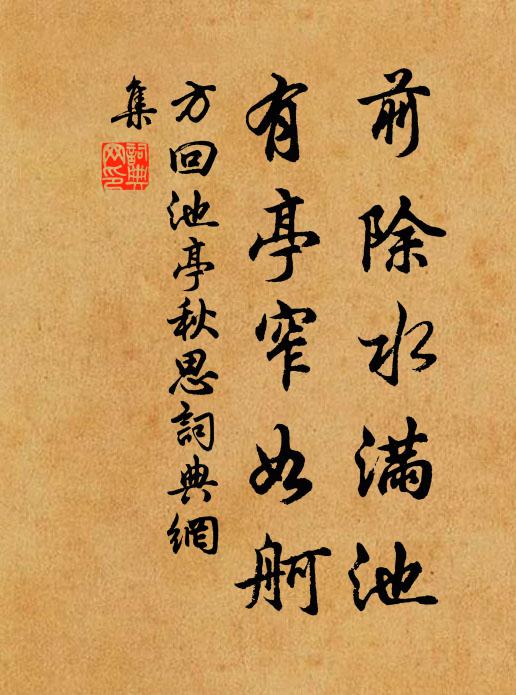 前除水滿池
有亭窄如舸
方回池亭秋思詞典網
集
詞典網印